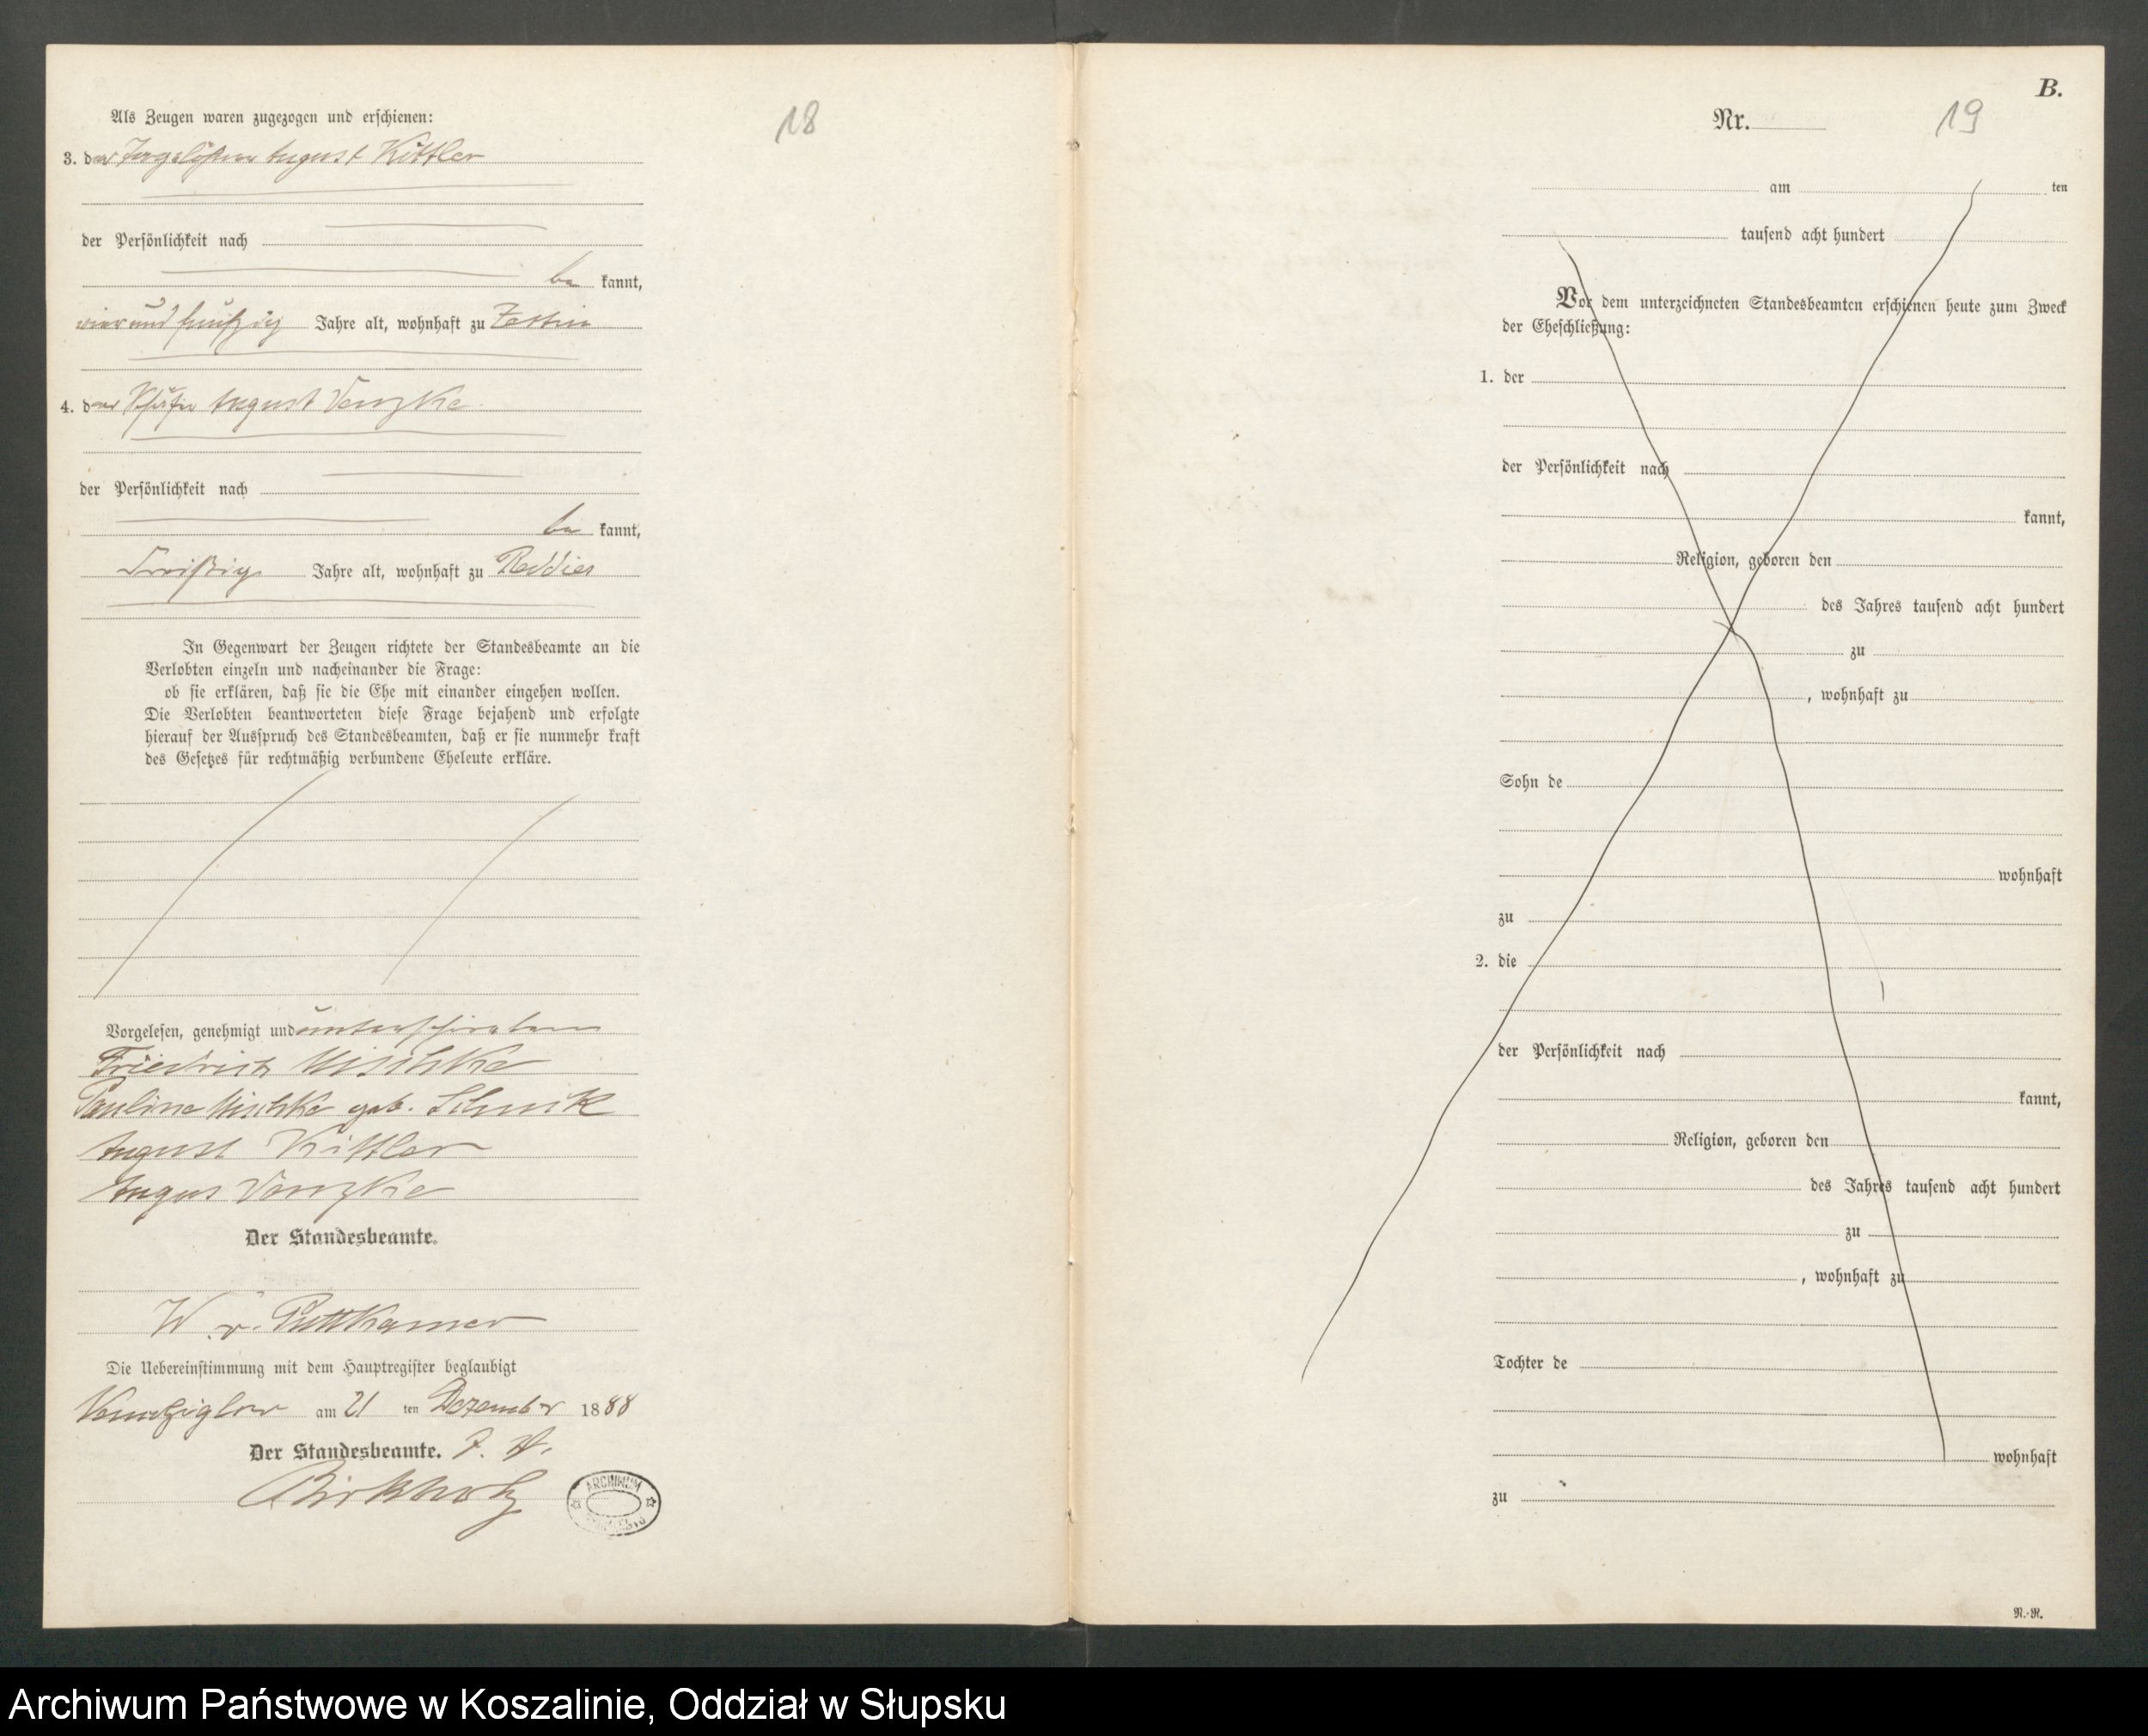 Als Zeugen waren zugezogen und erschienen:
3. der August Kittler
der Persönlichkeit nach
be kannt,
vier und fünfzig Jahre alt, wohnhaft zu Zettin
4. der Schäfer August Venzke
der Persönlichkeit nach
be kannt,
dreißig Jahre alt, wohnhaft zu Reddies
In Gegenwart der Zeugen richtete der Standesbeamte an die
Verlobten einzeln und nacheinander die Frage:
ob sie erklären, daß sie die Ehe mit einander eingehen wollen.
Die Verlobten beantworteten diese Frage bejahend und erfolgte
hierauf der Ausspruch des Standesbeamten, daß er sie nunmehr kraft
des Gesetzes für rechtmäßig verbundene Eheleute erkläre.
Vorgelesen, genehmigt und unterschrieben
Friedrich Mischke
Pauline Mischke geb.
August Kittler
August Venzke
Der Standesbeamte.
W. v. Puttkamer
Die Uebereinstimmung mit dem Hauptregister beglaubigt
am 21 ten Dezember 1888
Der Standesbeamte. J. V.
Birkholz
ARCHIWUM
18
B.
Nr.
19
am ten
tausend acht hundert
Vor dem unterzeichneten Standesbeamten erschienen heute zum Zweck
der Eheschließung:
1. der
der Persönlichkeit nach
kannt,
Religion, geboren den
des Jahres tausend acht hundert
zu
, wohnhaft zu
Sohn de
wohnhaft
zu
2. die
der Persönlichkeit nach
kannt,
Religion, geboren den
des Jahres tausend acht hundert
zu
, wohnhaft zu
Tochter de
wohnhaft
zu
R.-R.
Archiwum Państwowe w Koszalinie, Oddział w Słupsku